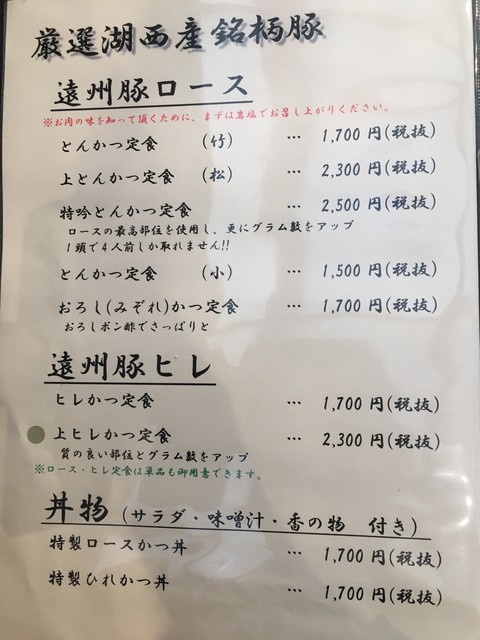 厳選湖西産銘柄豚
遠州豚ロース
※お肉の味を知って頂くために、まずは岩塩でお召し上がりください。
とんかつ定食 (竹) … 1,700 円(税抜)
上とんかつ定食 (松) … 2,300 円(税抜)
特吟とんかつ定食 … 2,500 円(税抜)
ロースの最高部位を使用し、更にグラム数をアップ
1頭で4人前しか取れません!!
とんかつ定食 (小) … 1,500 円(税抜)
おろし(みぞれ)かつ定食 … 1,700 円(税抜)
おろしポン酢でさっぱりと
遠州豚ヒレ
ヒレかつ定食 … 1,700 円(税抜)
上ヒレかつ定食 … 2,300 円(税抜)
質の良い部位とグラム数をアップ
※ロース・ヒレ定食は単品も御用意できます。
丼物 (サラダ・味噌汁・香の物 付き)
特製ロースかつ丼 … 1,700 円(税抜)
特製ひれかつ丼 … 1,700 円(税抜)